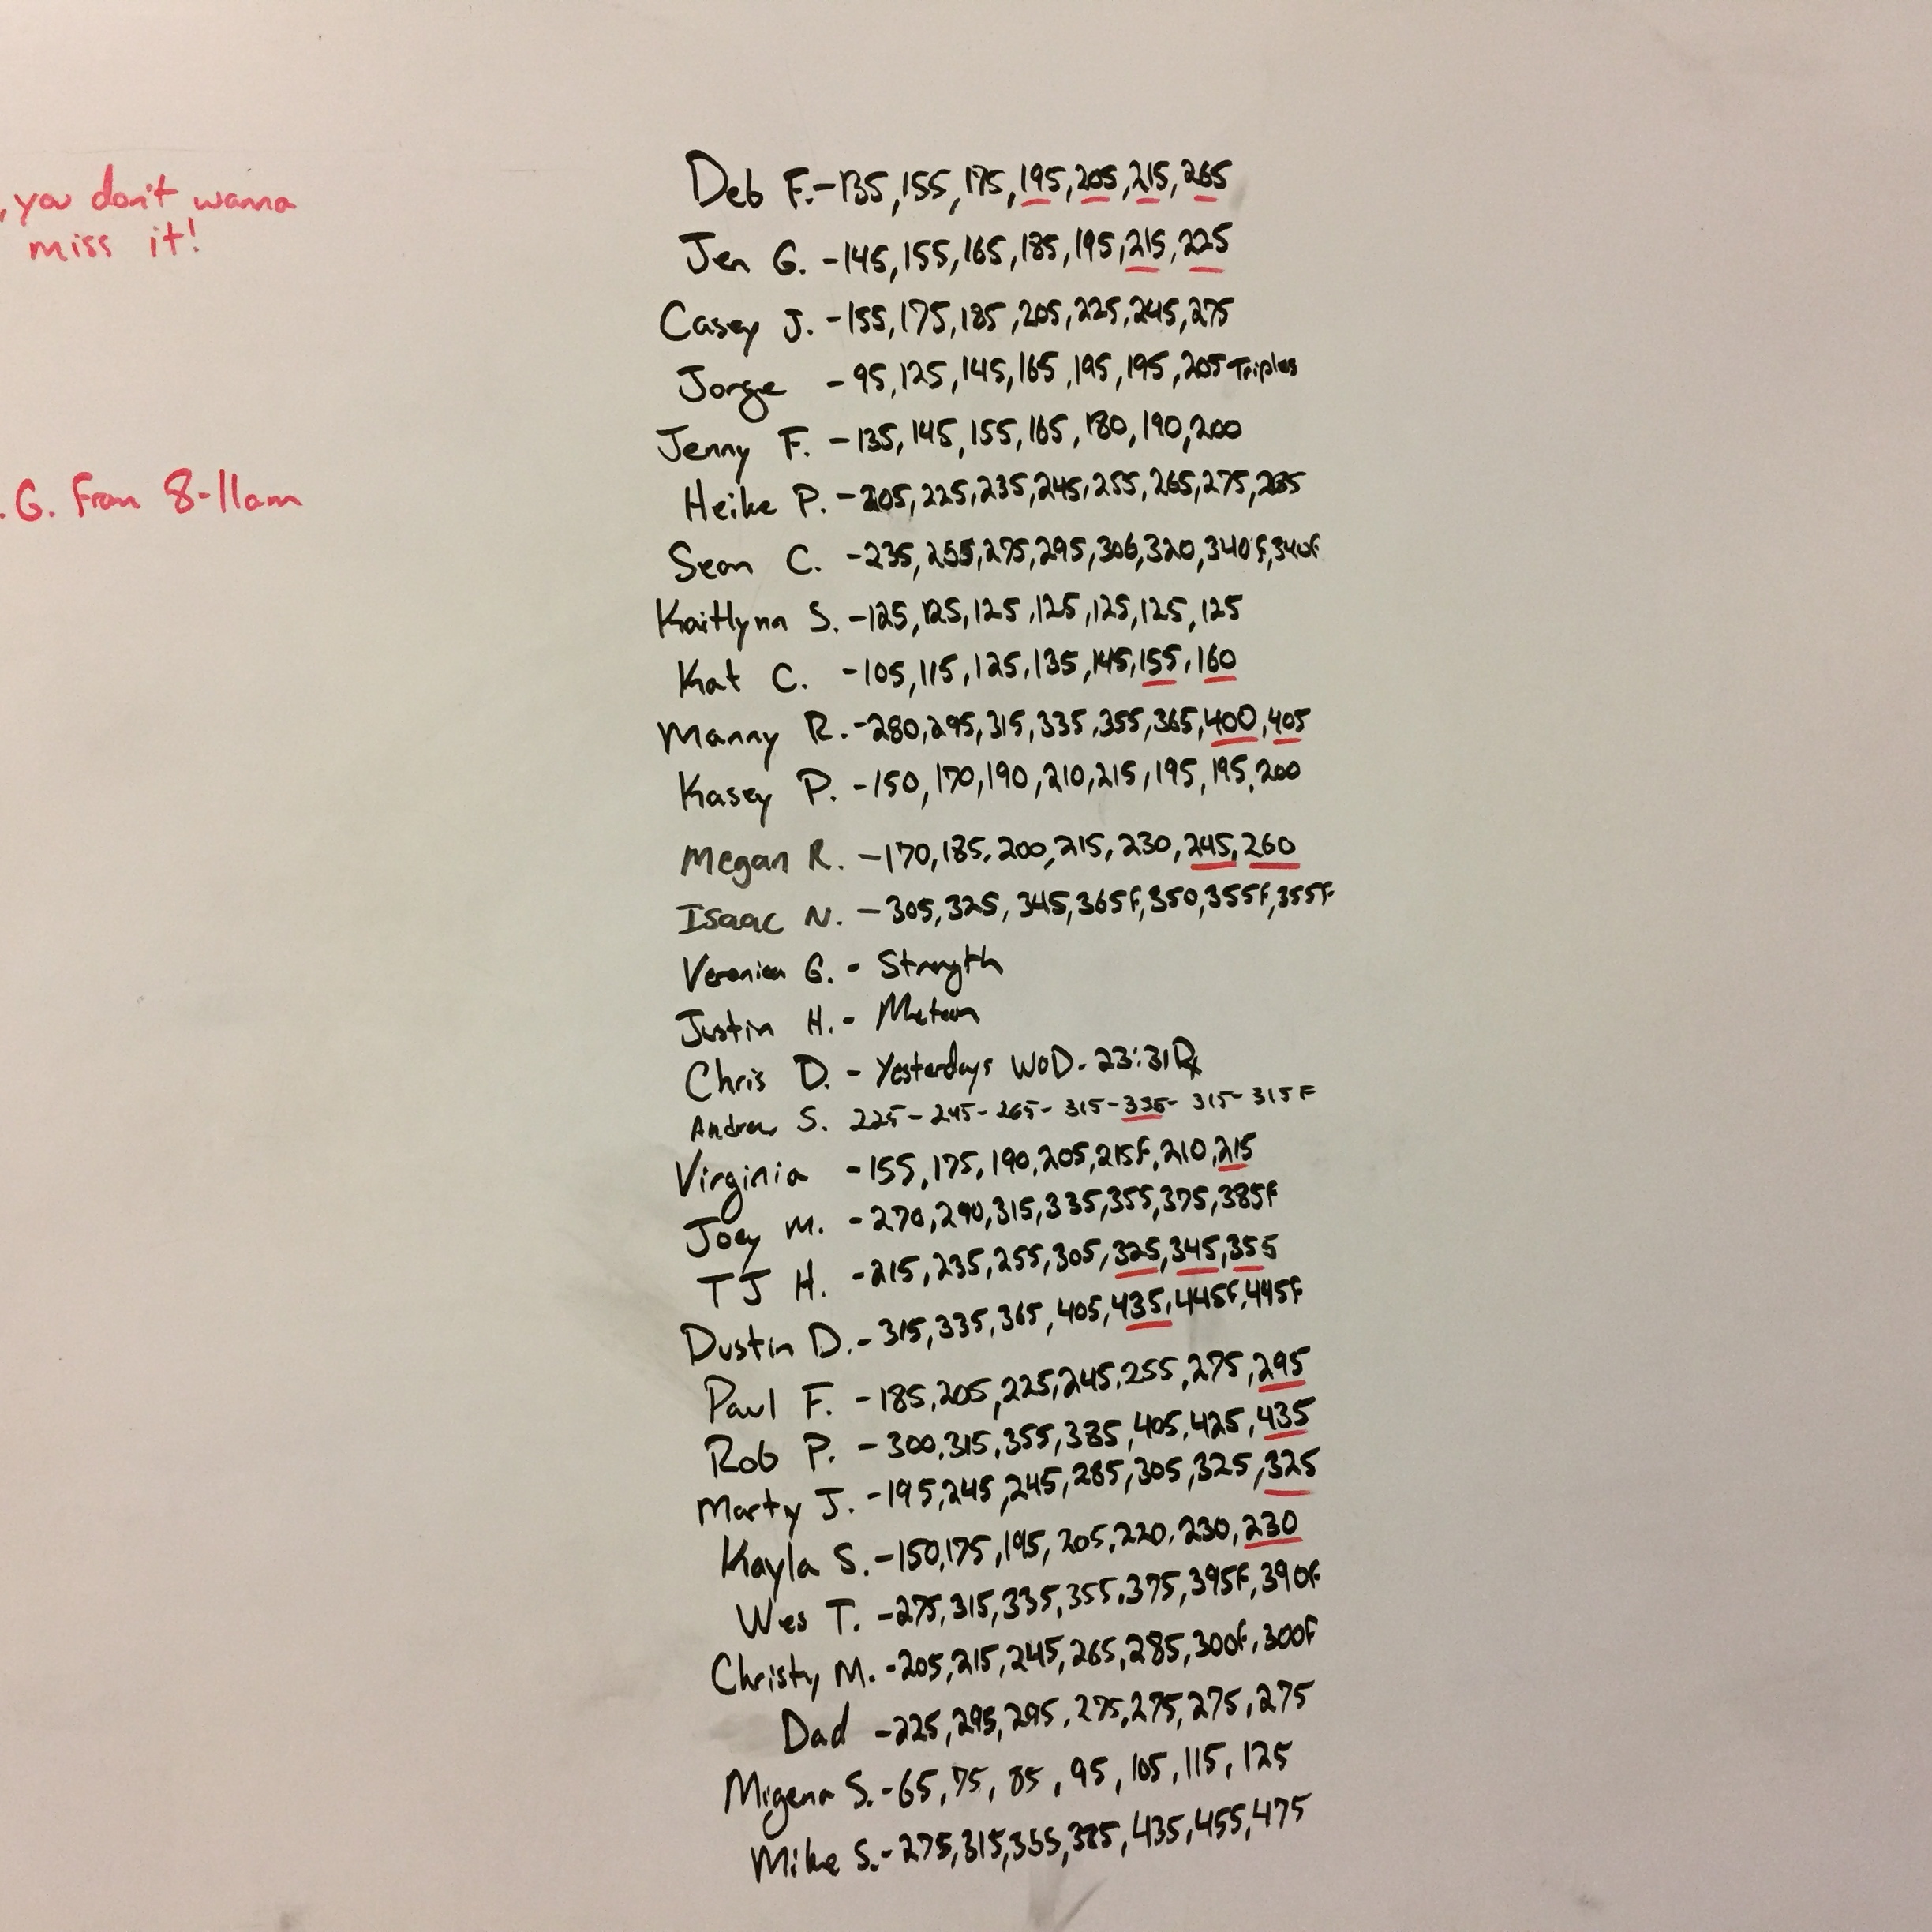 , you don't wanna
miss it!
.G. From 8-11am
Deb F.-135,155,175,195,205,215,265
Jen G. -145,155,165,185,195,215,225
Casey J. -155,175,185,205,225,245,275
Jorge -95,125,145,165,195,195,205 Triples
Jenny F. -135,145,155,165,180,190,200
Heike P. -205,225,235,245,255,265,275,285
Sean C. -235,255,275,295,306,320,340f,340f
Kaitlynn S. -125,125,125,125,125,125,125
Kat C. -105,115,125,135,145,155,160
Manny R.-280,295,315,335,355,365,400,405
Kasey P. -150,170,190,210,215,195,195,200
Megan R. -170,185,200,215,230,245,260
Isaac N. -305,325,345,365f,350,355f,355f
Veronica G. - Strength
Justin H. - Metcon
Chris D. - Yesterdays WOD. 23:31 Rx
Andrew S. 225-245-265-315-335-315-315F
Virginia -155,175,190,205,215f,210,215
Joey M. -270,290,315,335,355,375,385f
TJ H. -215,235,255,305,325,345,355
Dustin D.-315,335,365,405,435,445f,445f
Paul F. -185,205,225,245,255,275,295
Rob P. -300,315,355,385,405,425,435
Marty J. -195,245,245,285,305,325,325
Kayla S. -150,175,195,205,220,230,230
Wes T. -275,315,335,355,375,395f,390f
Christy M. -205,215,245,265,285,300f,300f
Dad -225,295,295,275,275,275,275
Migena S.-65,75,85,95,105,115,125
Mike S.-275,315,355,385,435,455,475